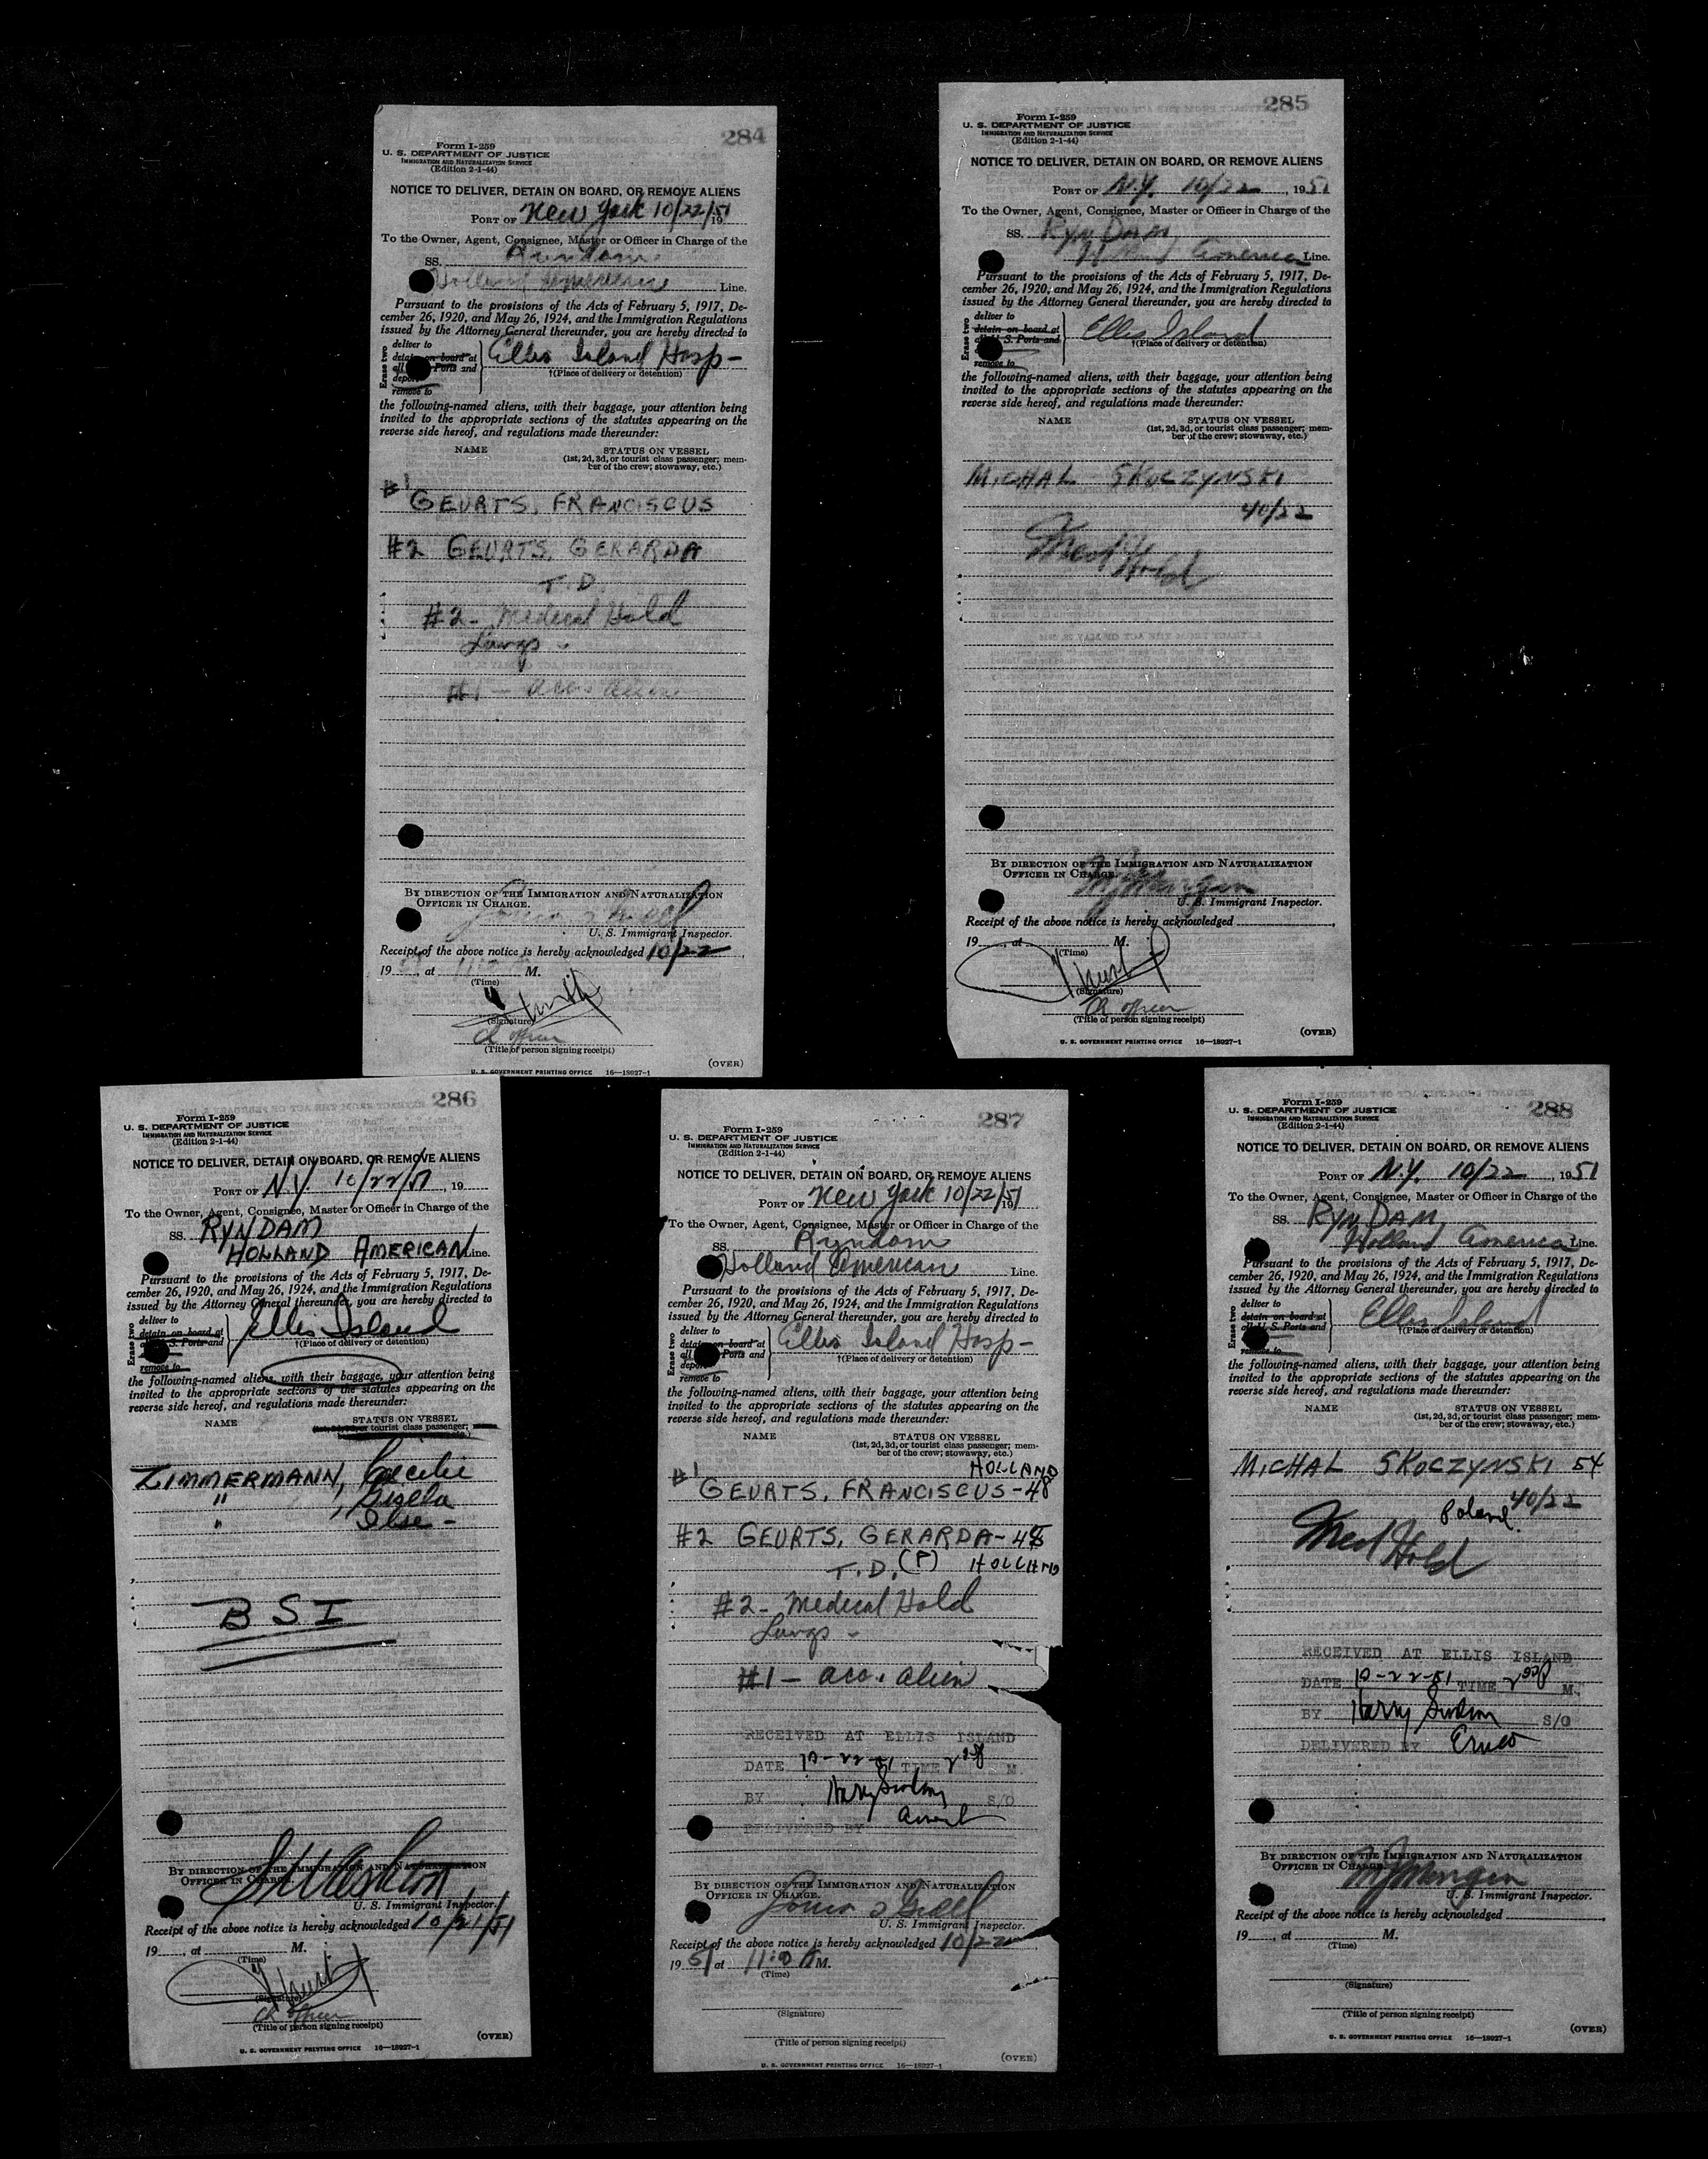 284
Form I-259
U. S. DEPARTMENT OF JUSTICE
IMMIGRATION AND NATURALIZATION SERVICE
(Edition 2-1-44)
NOTICE TO DELIVER, DETAIN ON BOARD, OR REMOVE ALIENS
PORT OF New York 10/22/51 19
To the Owner, Agent, Consignee, Master or Officer in Charge of the
SS. Ryndam
Holland American Line.
Pursuant to the provisions of the Acts of February 5, 1917, De-
cember 26, 1920, and May 26, 1924, and the Immigration Regulations
issued by the Attorney General thereunder, you are hereby directed to
Erase two
deliver to
detain on board at
all Ports and
depor
remove to
Ellis Island Hosp-
†(Place of delivery or detention)
the following-named aliens, with their baggage, your attention being
invited to the appropriate sections of the statutes appearing on the
reverse side hereof, and regulations made thereunder:
NAME STATUS ON VESSEL
(1st, 2d, 3d, or tourist class passenger; mem-
ber of the crew; stowaway, etc.)
#1 GEURTS, FRANCISCUS
#2 GEURTS, GERARDA
T.D.
#2- Medical Hold
Lungs -
#1 - acc. alien
BY DIRECTION OF THE IMMIGRATION AND NATURALIZATION
OFFICER IN CHARGE.
U. S. Immigrant Inspector.
Receipt of the above notice is hereby acknowledged 10/22,
19 , at M.
(Time)
(Signature)
Ch officer
(Title of person signing receipt)
(OVER)
U. S. GOVERNMENT PRINTING OFFICE 16—18027-1
285
Form I-259
U. S. DEPARTMENT OF JUSTICE
IMMIGRATION AND NATURALIZATION SERVICE
(Edition 2-1-44)
NOTICE TO DELIVER, DETAIN ON BOARD, OR REMOVE ALIENS
PORT OF N.Y. 10/22, 1951
To the Owner, Agent, Consignee, Master or Officer in Charge of the
SS. RynDam
Holland America Line.
Pursuant to the provisions of the Acts of February 5, 1917, De-
cember 26, 1920, and May 26, 1924, and the Immigration Regulations
issued by the Attorney General thereunder, you are hereby directed to
Erase two
deliver to
detain on board at
all U. S. Ports and
remove to
Ellis Island
†(Place of delivery or detention)
the following-named aliens, with their baggage, your attention being
invited to the appropriate sections of the statutes appearing on the
reverse side hereof, and regulations made thereunder:
NAME STATUS ON VESSEL
(1st, 2d, 3d, or tourist class passenger; mem-
ber of the crew; stowaway, etc.)
MICHAL SKOCZYNSKI
40/22
Med Hold
BY DIRECTION OF THE IMMIGRATION AND NATURALIZATION
OFFICER IN CHARGE.
U. S. Immigrant Inspector.
Receipt of the above notice is hereby acknowledged
19 , at M.
(Time)
(Signature)
Ch officer
(Title of person signing receipt)
(OVER)
U. S. GOVERNMENT PRINTING OFFICE 16—18027-1
286
Form I-259
U. S. DEPARTMENT OF JUSTICE
IMMIGRATION AND NATURALIZATION SERVICE
(Edition 2-1-44)
NOTICE TO DELIVER, DETAIN ON BOARD, OR REMOVE ALIENS
PORT OF N.Y. 10/22/51, 19
To the Owner, Agent, Consignee, Master or Officer in Charge of the
SS. RYNDAM
HOLLAND AMERICAN Line.
Pursuant to the provisions of the Acts of February 5, 1917, De-
cember 26, 1920, and May 26, 1924, and the Immigration Regulations
issued by the Attorney General thereunder, you are hereby directed to
Erase two
deliver to
detain on board at
S. Ports and
remove to
Ellis Island
†(Place of delivery or detention)
the following-named aliens, with their baggage, your attention being
invited to the appropriate sections of the statutes appearing on the
reverse side hereof, and regulations made thereunder:
NAME STATUS ON VESSEL
or tourist class passenger;
ZIMMERMANN, Caecilie
" , Gisella
" , Ilse -
BSI
BY DIRECTION OF THE IMMIGRATION AND NATURALIZATION
OFFICER IN CHARGE.
U. S. Immigrant Inspector.
Receipt of the above notice is hereby acknowledged 10/21/51
19 , at M.
(Time)
(Signature)
Ch officer
(Title of person signing receipt)
(OVER)
U. S. GOVERNMENT PRINTING OFFICE 16—18027-1
287
Form I-259
U. S. DEPARTMENT OF JUSTICE
IMMIGRATION AND NATURALIZATION SERVICE
(Edition 2-1-44)
NOTICE TO DELIVER, DETAIN ON BOARD, OR REMOVE ALIENS
PORT OF New York 10/22/51 19
To the Owner, Agent, Consignee, Master or Officer in Charge of the
SS. Ryndam
Holland American Line.
Pursuant to the provisions of the Acts of February 5, 1917, De-
cember 26, 1920, and May 26, 1924, and the Immigration Regulations
issued by the Attorney General thereunder, you are hereby directed to
Erase two
deliver to
detain on board at
all Ports and
depor
remove to
Ellis Island Hosp-
†(Place of delivery or detention)
the following-named aliens, with their baggage, your attention being
invited to the appropriate sections of the statutes appearing on the
reverse side hereof, and regulations made thereunder:
NAME STATUS ON VESSEL
(1st, 2d, 3d, or tourist class passenger; mem-
ber of the crew; stowaway, etc.)
HOLLAND
#1 GEURTS, FRANCISCUS-48
#2 GEURTS, GERARDA-45
T.D. (P) HOLLAND
#2- Medical Hold
Lungs -
#1 - acc. alien
RECEIVED AT ELLIS ISLAND
DATE 10-22-51 TIME M.
BY Harry S/O
DELIVERED BY
BY DIRECTION OF THE IMMIGRATION AND NATURALIZATION
OFFICER IN CHARGE.
U. S. Immigrant Inspector.
Receipt of the above notice is hereby acknowledged 10/22
1951 at 11:0 AM.
(Time)
(Signature)
(Title of person signing receipt)
(OVER)
U. S. GOVERNMENT PRINTING OFFICE 16—18027-1
288
Form I-259
U. S. DEPARTMENT OF JUSTICE
IMMIGRATION AND NATURALIZATION SERVICE
(Edition 2-1-44)
NOTICE TO DELIVER, DETAIN ON BOARD, OR REMOVE ALIENS
PORT OF N.Y. 10/22, 1951
To the Owner, Agent, Consignee, Master or Officer in Charge of the
SS. RYNDAM
Holland America Line.
Pursuant to the provisions of the Acts of February 5, 1917, De-
cember 26, 1920, and May 26, 1924, and the Immigration Regulations
issued by the Attorney General thereunder, you are hereby directed to
Erase two
deliver to
detain on board at
all U. S. Ports and
remove to
Ellis Island
†(Place of delivery or detention)
the following-named aliens, with their baggage, your attention being
invited to the appropriate sections of the statutes appearing on the
reverse side hereof, and regulations made thereunder:
NAME STATUS ON VESSEL
(1st, 2d, 3d, or tourist class passenger; mem-
ber of the crew; stowaway, etc.)
MICHAL SKOCZYNSKI 54
Poland 40/22
Med Hold
RECEIVED AT ELLIS ISLAND
DATE 10-22-51 TIME M.
BY Harry S/O
DELIVERED BY
BY DIRECTION OF THE IMMIGRATION AND NATURALIZATION
OFFICER IN CHARGE.
U. S. Immigrant Inspector.
Receipt of the above notice is hereby acknowledged
19 , at M.
(Time)
(Signature)
(Title of person signing receipt)
(OVER)
U. S. GOVERNMENT PRINTING OFFICE 16—18027-1